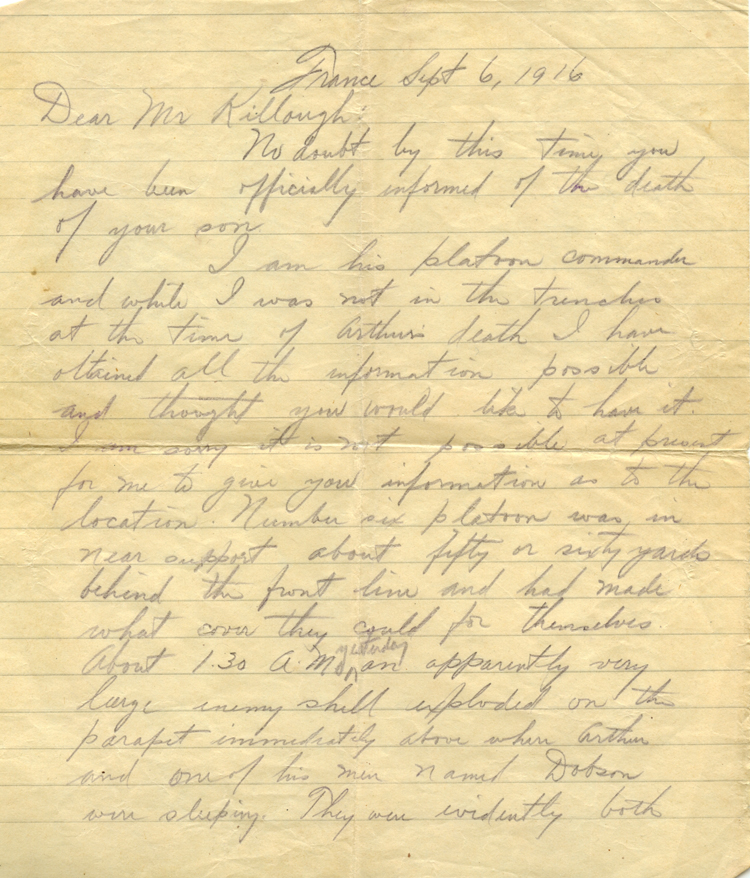 France Sept 6, 1916
Dear Mr Killough:
No doubt by this time you
have been officially informed of the death
of your son
I am his platoon commander
and while I was not in the trenches
at the time of Arthur's death I have
obtained all the information possible
and thought you would like to have it.
I am sorry it is not possible at present
for me to give you information as to the
location. Number six platoon was in
near support about fifty or sixty yards
behind the front line and had made
what cover they could for themselves.
About 1.30 A.M. yesterday an apparently very
large enemy shell exploded on the
parapet immediately above where Arthur
and one of his men named Dobson
were sleeping. They were evidently both